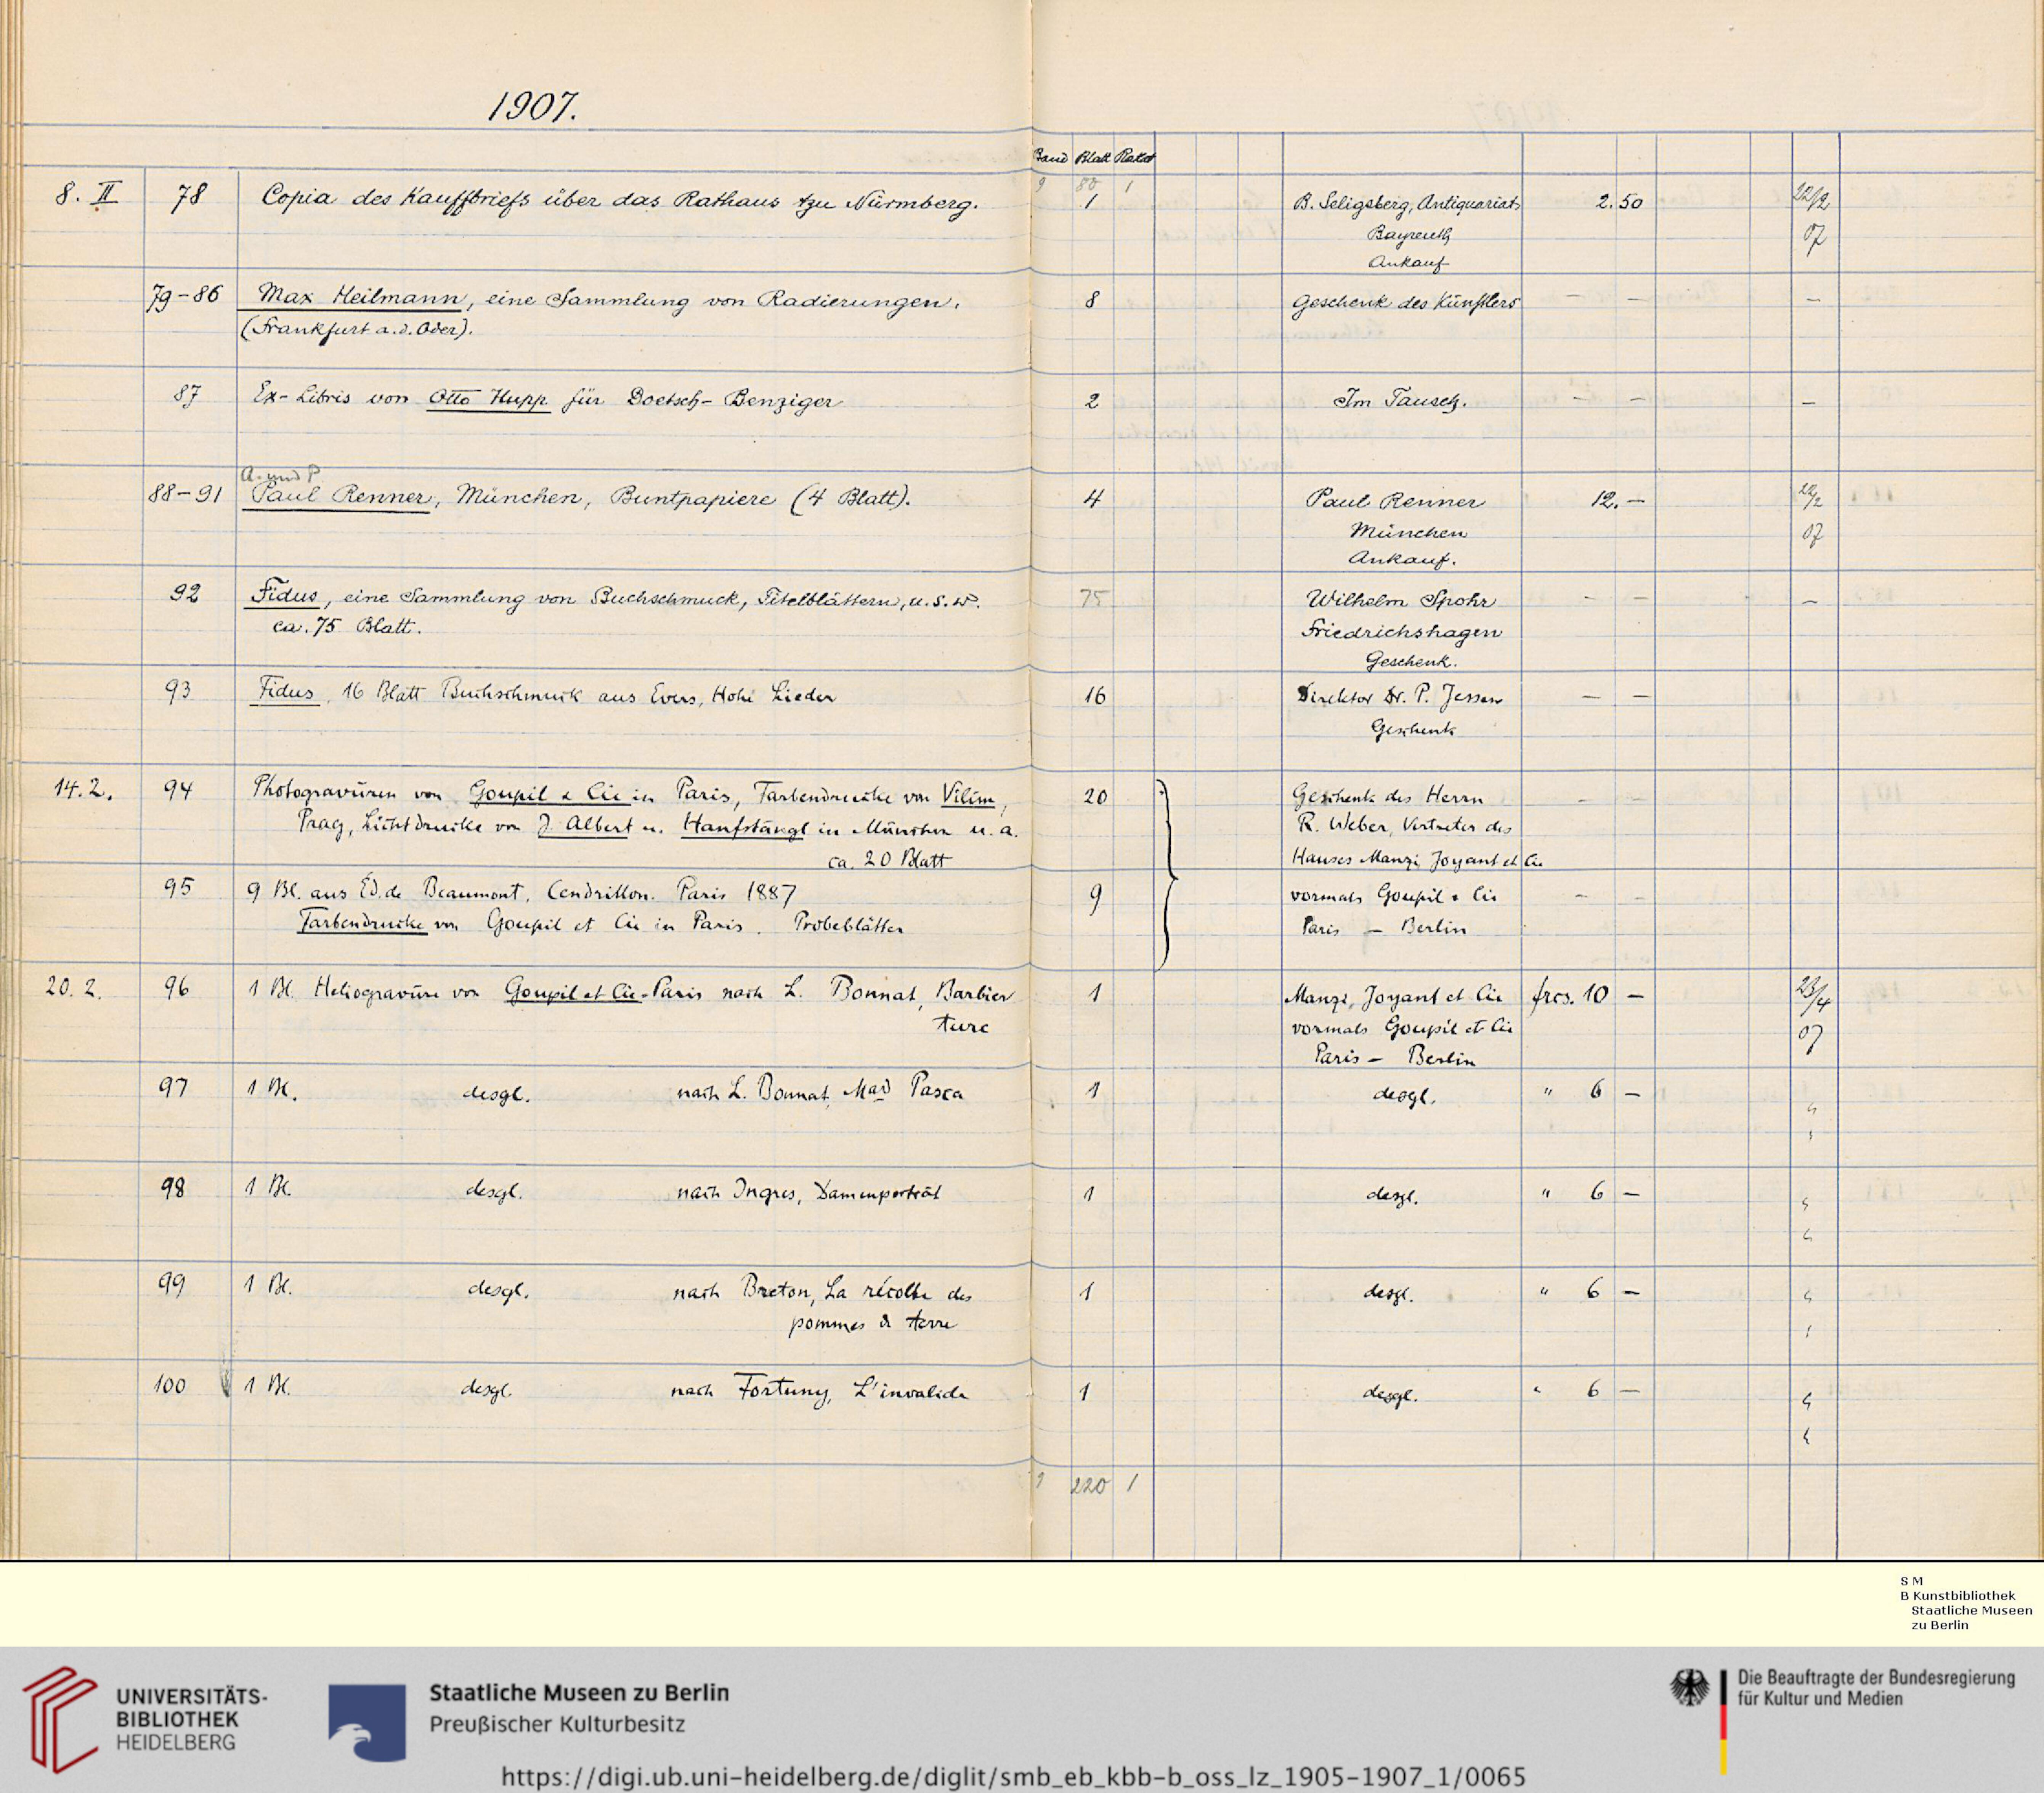 1907.
Band Blatt Paket
9 80 1
8. II 78 Copia des Kauffbriefs über das Rathaus tzu Nürmberg. 1 B. Seligsberg, Antiquariat, 2.50 22/2
Bayreuth 07
Ankauf
79-86 Max Heilmann, eine Sammlung von Radierungen. 8 Geschenk des Künstlers — — —
(Frankfurt a. d. Oder).
87 Ex-Libris von Otto Hupp für Doetsch-Benziger 2 Im Tausch. — — —
A. und P.
88-91 Paul Renner, München, Buntpapiere (4 Blatt). 4 Paul Renner 12.— 22/2
München 07
Ankauf.
92 Fidus, eine Sammlung von Buchschmuck, Titelblättern, u.s.w. 75 Wilhelm Spohr — — —
ca. 75 Blatt. Friedrichshagen
Geschenk.
93 Fidus, 16 Blatt Buchschmuck aus Evers, Hohe Lieder 16 Direktor Dr. P. Jessen — —
Geschenk
14.2. 94 Photogravüren von Goupil & Cie in Paris, Farbendrucke von Vilim, 20 Geschenk des Herrn — —
Prag, Lichtdrucke von J. Albert u. Hanfstängl in München u. a. R. Weber, Vertreter des
ca. 20 Blatt Hauses Manzi, Joyant et Cie
95 9 Bl. aus Ed. de Beaumont, Cendrillon. Paris 1887 9 vormals Goupil & Cie — —
Farbendrucke von Goupil et Cie in Paris. Probeblätter Paris — Berlin
20. 2. 96 1 Bl. Heliogravüre von Goupil et Cie-Paris nach L. Bonnat, Barbier 1 Manzi, Joyant et Cie frcs. 10 — 23/4
turc vormals Goupil et Cie 07
Paris — Berlin
97 1 Bl. desgl. nach L. Bonnat, Mad Pasca 1 desgl. " 6 — "
"
98 1 Bl. desgl. nach Ingres, Damenporträt 1 desgl. " 6 — "
"
99 1 Bl. desgl. nach Breton, La récolte des 1 desgl. " 6 — "
pommes de terre "
100 1 Bl. desgl. nach Fortuny, L'invalide 1 desgl. " 6 — "
"
9 220 1
S M
B Kunstbibliothek
Staatliche Museen
zu Berlin
UNIVERSITÄTS-
BIBLIOTHEK
HEIDELBERG
Staatliche Museen zu Berlin
Preußischer Kulturbesitz
Die Beauftragte der Bundesregierung
für Kultur und Medien
https://digi.ub.uni-heidelberg.de/diglit/smb_eb_kbb-b_oss_lz_1905-1907_1/0065